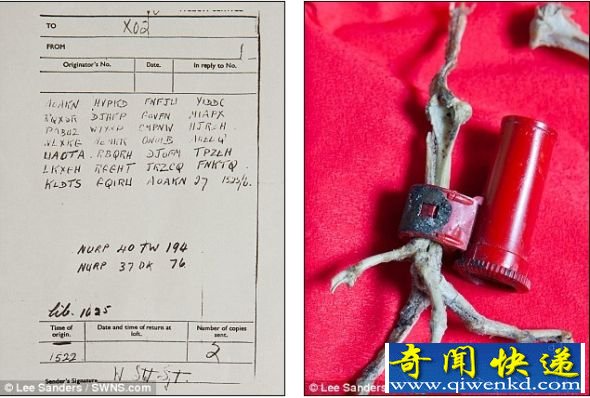 TO X02
FROM
Originator's No. Date. In reply to No.
AOAKN HVPKD FNFJU YIDDC
RQXSR DJHFP GOVFN MIAPX
PABUZ WYYNP CMPNW HJRZH
NLXKG MEMKK ONOIB AKEEQ
UAOTA RBQRH DJOFM TPZEH
LKXGH RGGHT JRZCQ FNKTQ
KLDTS GQIRU AOAKN 27 1525/6.
NURP 40 TW 194
NURP 37 DK 76
lib. 1625
Time of origin. Date and time of return at loft. Number of copies sent.
1522 2
Sender's Signature W Stot Sjt
© Lee Sanders / SWNS.com
© Lee Sanders
奇闻快递
www.qiwenkd.com